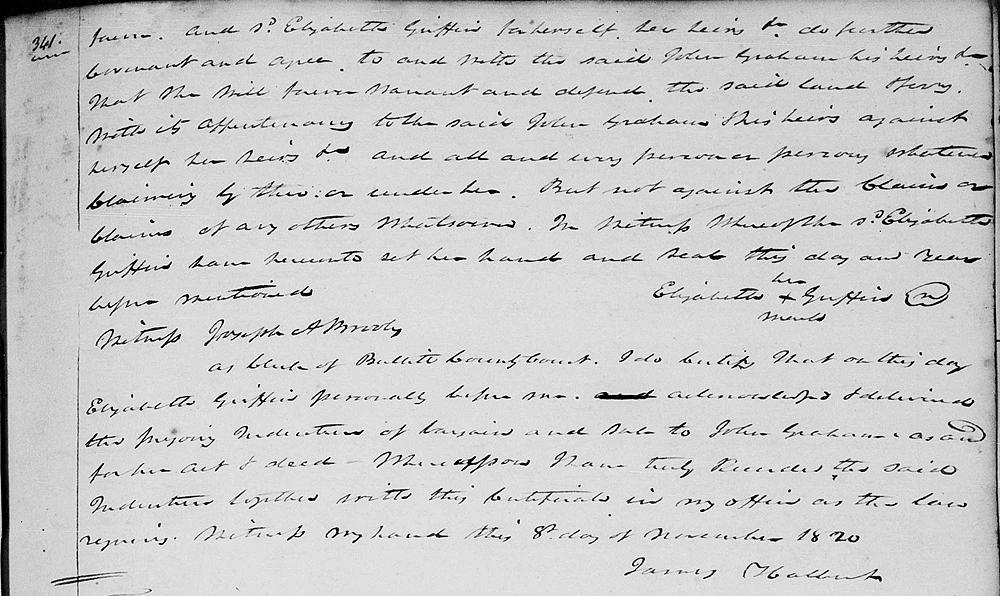 341.
forever. And sd. Elizabeth Griffin for herself, her heirs &c do further
Covenant and agree, to and with the said John Graham his heirs &c
that She will forever Warrant and defend, the said land & ferry.
With its appertenances to the said John Graham & his heirs against
herself her heirs &c and all and every person or persons whatever
Claiming by thro: or under her. But not against the Claim or
Claims of any others Whatsoever. In Witness Whereof the sd. Elizabeth
Griffin have hereunto set her hand and seal this day and Year
before mentioned
her
Elizabeth + Griffin
mark
Witness Joseph A Brooks
as Clerk of Bullitt County Court. I do Certify That on this day
Elizabeth Griffin personally before me. acknowledged & delivered
the foregoing Indenture of bargain and Sale to John Graham as and
for her act & deed - Whereupon I have truly Recorded the said
Indenture together with this Certificate in my office as the law
requires. Witness my hand this 8th day of November 1820
James Halbert